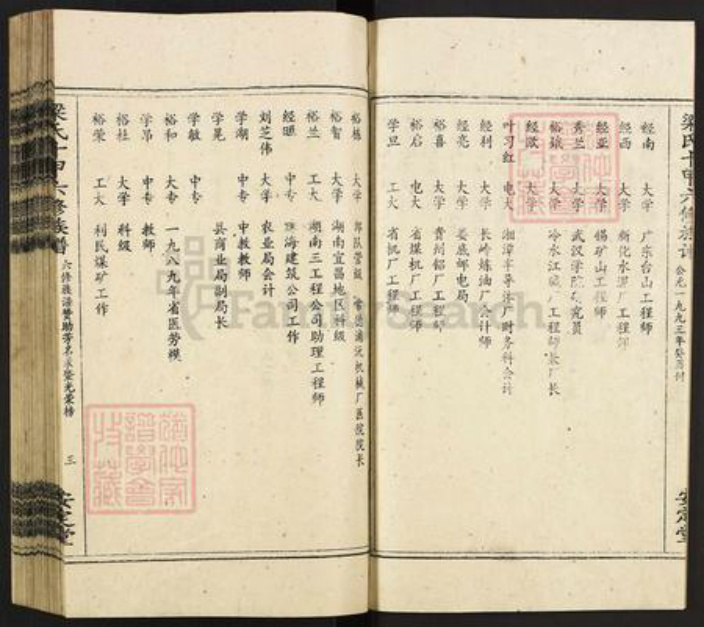 梁氏十甲六修族谱
公元一九九三年癸酉
安定堂
经南 大学 广东台山工程师
经西 大学 新化水泥厂工程师
经亚 大学 锡矿山工程师
秀兰 大学 武汉学院研究员
裕娥 大学 冷水江碱厂工程师 厂长
经欧 大学
叶习红 电大 湘潭半导体厂财务科会计
经利 大学 长岭炼油厂会计师
经亮 大学 娄底邮电局
裕喜 大学 贵州铝厂工程师
裕启 电大 省煤机厂工程师
学旦 工大 省机厂工程师
裕栋 大学 部队营级 常德浦沅机械厂医院院长
裕智 大学 湖南宜昌地区科级
裕兰 工大 湖南三工程公司助理工程师
经照 中专 珠海建筑公司工作
刘芝伟 大学 农业局会计
学湖 中专 中教教师
学晃 县商业局副局长
学敏 中专
裕和 大专 一九八九年省医劳模
学吊 中专 教师
裕社 大学 科级
裕荣 工大 利民煤矿工作
梁氏十甲六修族谱
六修族谱赞助芳名 暨光荣榜
三
安定堂
FamilySearch